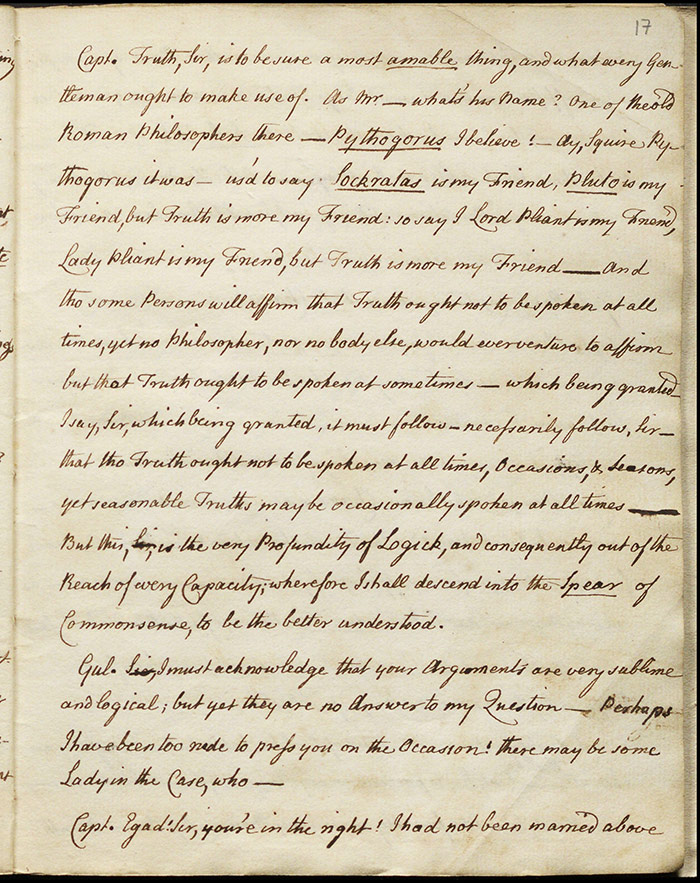 17
Capt. Truth, Sir, is to be sure a most amable thing, and what every Gen-
tleman ought to make use of. As Mr — what's his Name? One of the old
Roman Philosophers there — Pythogorus I believe! — Ay, Squire Py-
thogorus it was — us'd to say Sockratas is my Friend, Pluto is my
Friend, but Truth is more my Friend: so say I Lord Pliant is my Friend,
Lady Pliant is my Friend, but Truth is more my Friend — And
tho some Persons will affirm that Truth ought not to be spoken at all
times, yet no Philosopher, nor no body else, would ever venture to affirm
but that Truth ought to be spoken at some times — which being granted
I say, Sir, which being granted, it must follow — necessarily follow, Sir —
that tho Truth ought not to be spoken at all times, Occasions, & Seasons,
yet seasonable Truths may be occasionally spoken at all times —
But this, Sir, is the very Profundity of Logick, and consequently out of the
Reach of every Capacity; wherefore I shall descend into the Spear of
Commonsense, to be the better understood.
Gul. Sir, I must acknowledge that your Arguments are very sublime
and logical; but yet they are no Answer to my Question — Perhaps
I have been too rude to press you on the Occasion! there may be some
Lady in the Case, who —
Capt. Egad! Sir, you're in the right! I had not been married above